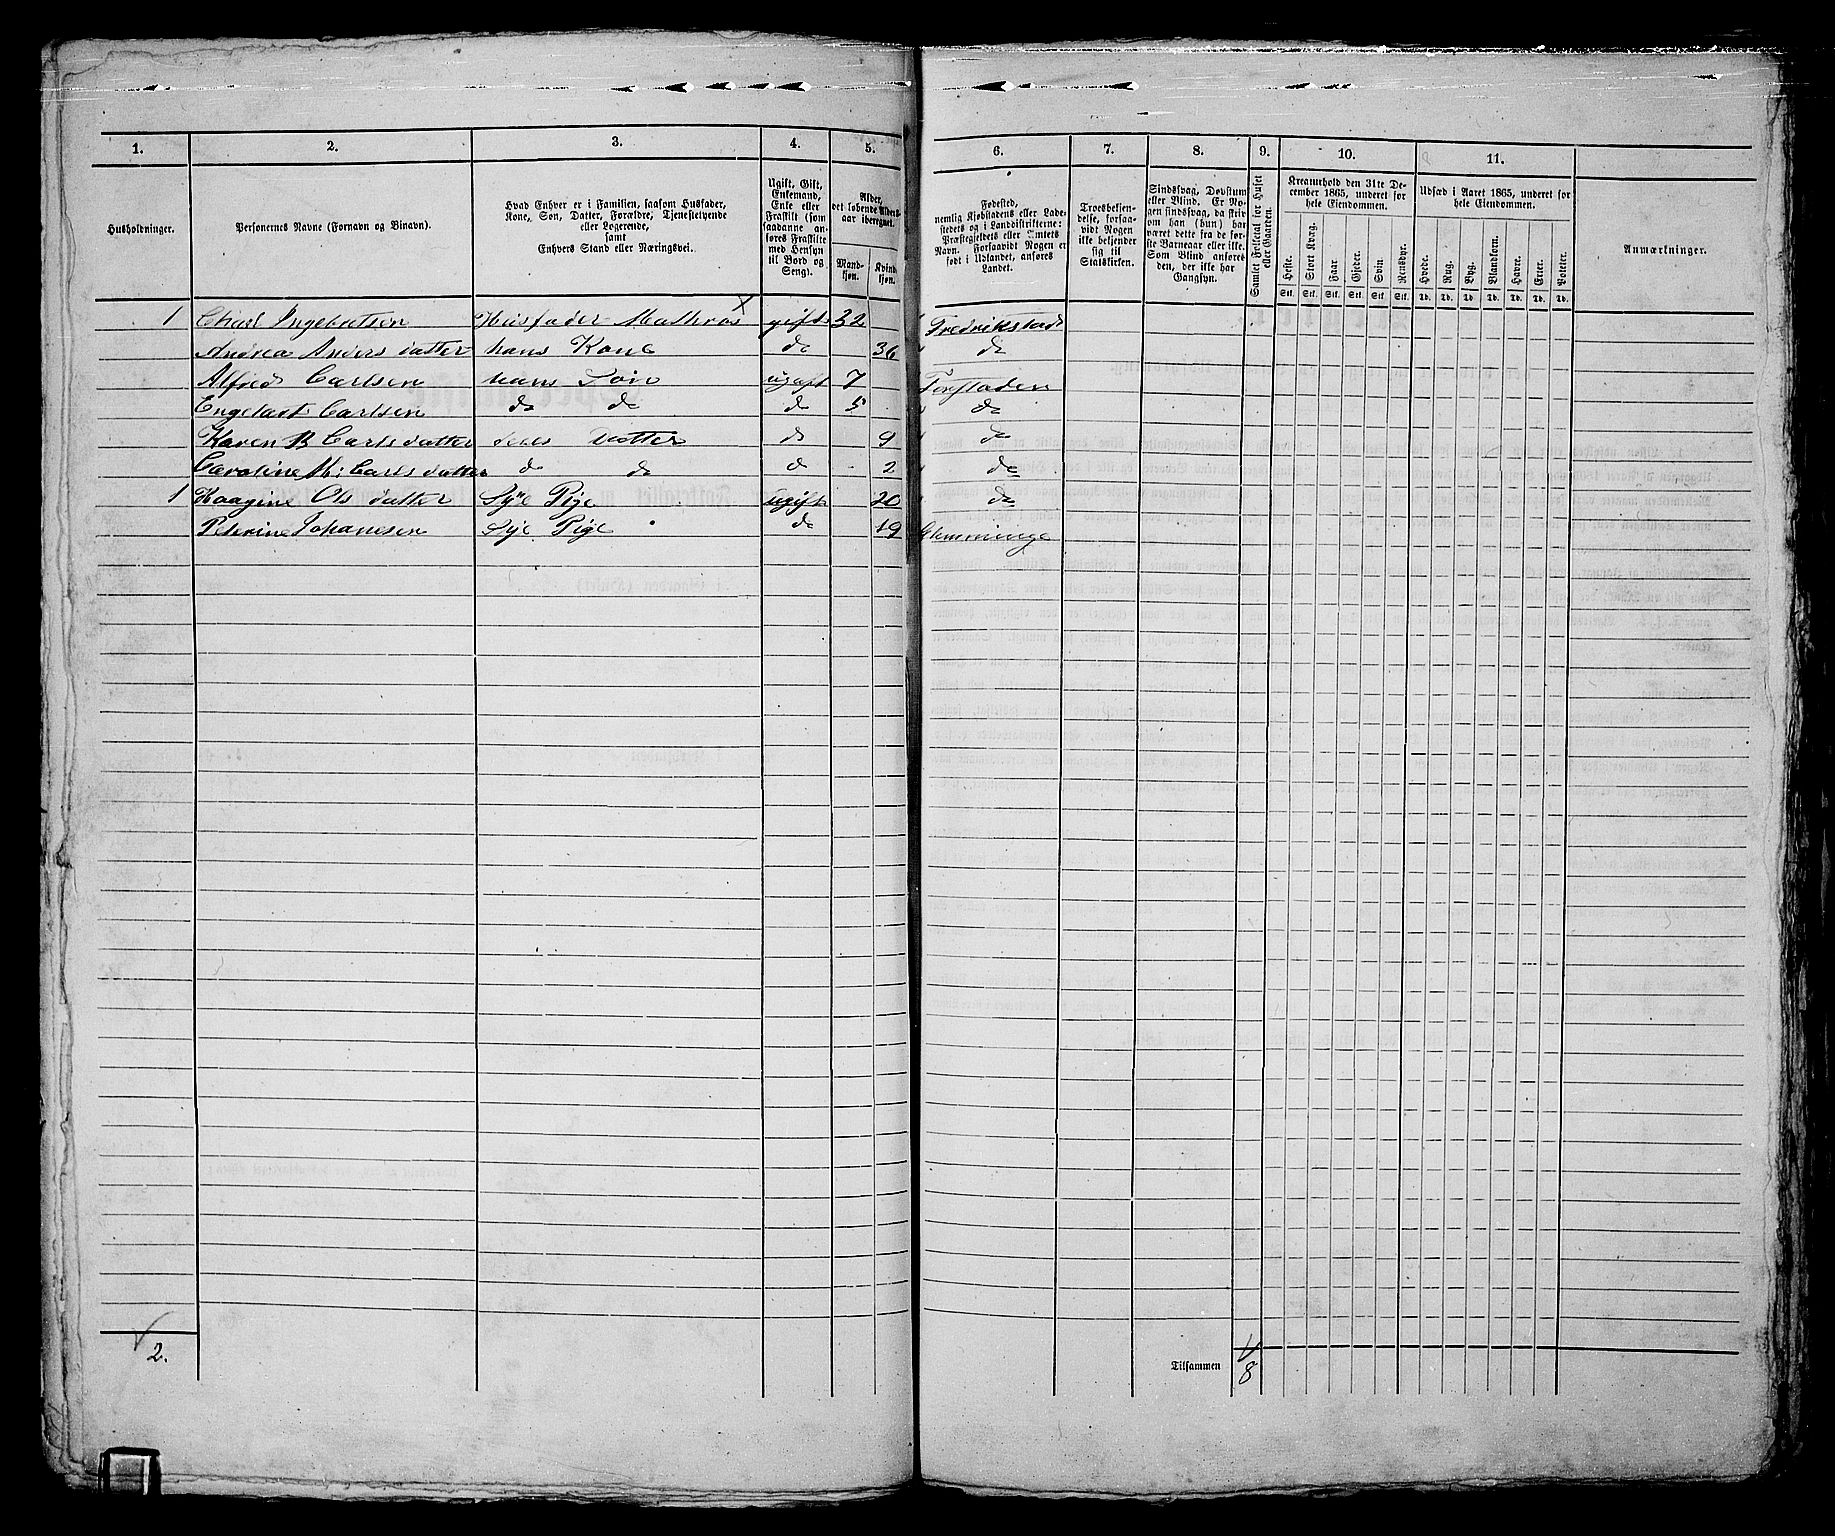 1. 2. 3. 4. 5. 6. 7. 8. 9. 10. 11.
Husholdninger.
Personernes Navne (Fornavn og Binavn).
Hvad Enhver er i Familien, saasom Husfader,
Kone, Søn, Datter, Forældre, Tjenestetyende
eller Logerende,
samt
Enhvers Stand eller Næringsvei.
Ugift, Gift,
Enkemand,
Enke eller
Fraskilt (som
saadanne an-
føres Fraskilte
med Hensyn
til Bord og
Seng).
Alder,
det løbende Alders-
aar iberegnet.
Mand-
kjøn.
Kvind-
kjøn.
Fødested,
nemlig Kjøbstadens eller Lade-
stedets og i Landdistrikterne:
Præstegjeldets eller Amtets
Navn. Forsaavidt Nogen er
født i Udlandet, anføres
Landet.
Troesbekjen-
delse, forsaa-
vidt Nogen
ikke bekjender
sig til
Statskirken.
Sindssvag, Døvstum
eller Blind. Er No-
gen sindssvag, da skriv
om han (hun) har
været dette fra de før-
ste Barneaar eller ikke.
Som Blind anføres
den, der ikke har
Gangsyn.
Samlet Folketal for Huset
eller Gaarden.
Kreaturhold den 31te De-
cember 1865, underet for
hele Eiendommen.
Heste. Stort Kvæg. Faar. Gjeder. Svin. Rensdyr.
Stk. Stk. Stk. Stk. Stk. Stk.
Udsæd i Aaret 1865, underet for
hele Eiendommen.
Hvede. Rug. Byg. Blandkorn. Havre. Erter. Poteter.
Td. Td. Td. Td. Td. Td. Td.
Anmærkninger.
1 Carl Ingebretsen Husfader Mathros X gift 32 Fredrikstad
Andrea Anders datter hans Kone do 36 do
Alfred Carlsen hans Søn ugift 7 Forstaden
Engelart Carlsen do do do 5 do
Karen B Carls datter deres Datter do 9 do
Caroline M: Carls datter do do do 2 do
1 Kaagine Ols datter Sye Pige ugift 20 do
Peterine Johannesen Sye Pige do 19 Glemminge
2.
Tilsammen 8